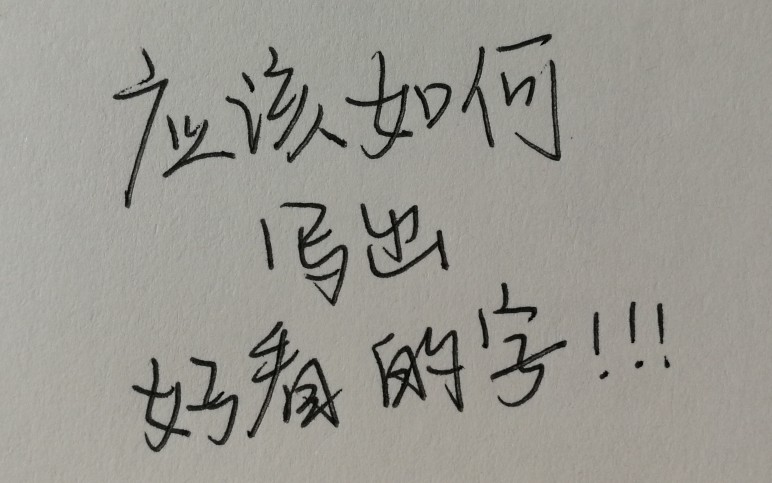 应该如何
写出
好看的字!!!